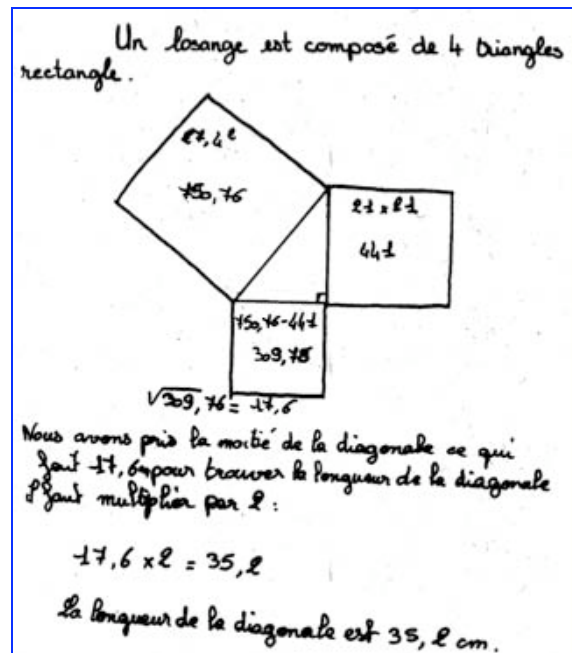 Un losange est composé de 4 triangles
rectangle.
27,4²
750,76
21 x 21
441
750,76-441
309,76
√309,76 = 17,6
Nous avons pris la moitié de la diagonale ce qui
fait 17,6 pour trouver la longueur de la diagonale
il faut multiplier par 2 :
17,6 x 2 = 35,2
La longueur de la diagonale est 35,2 cm.